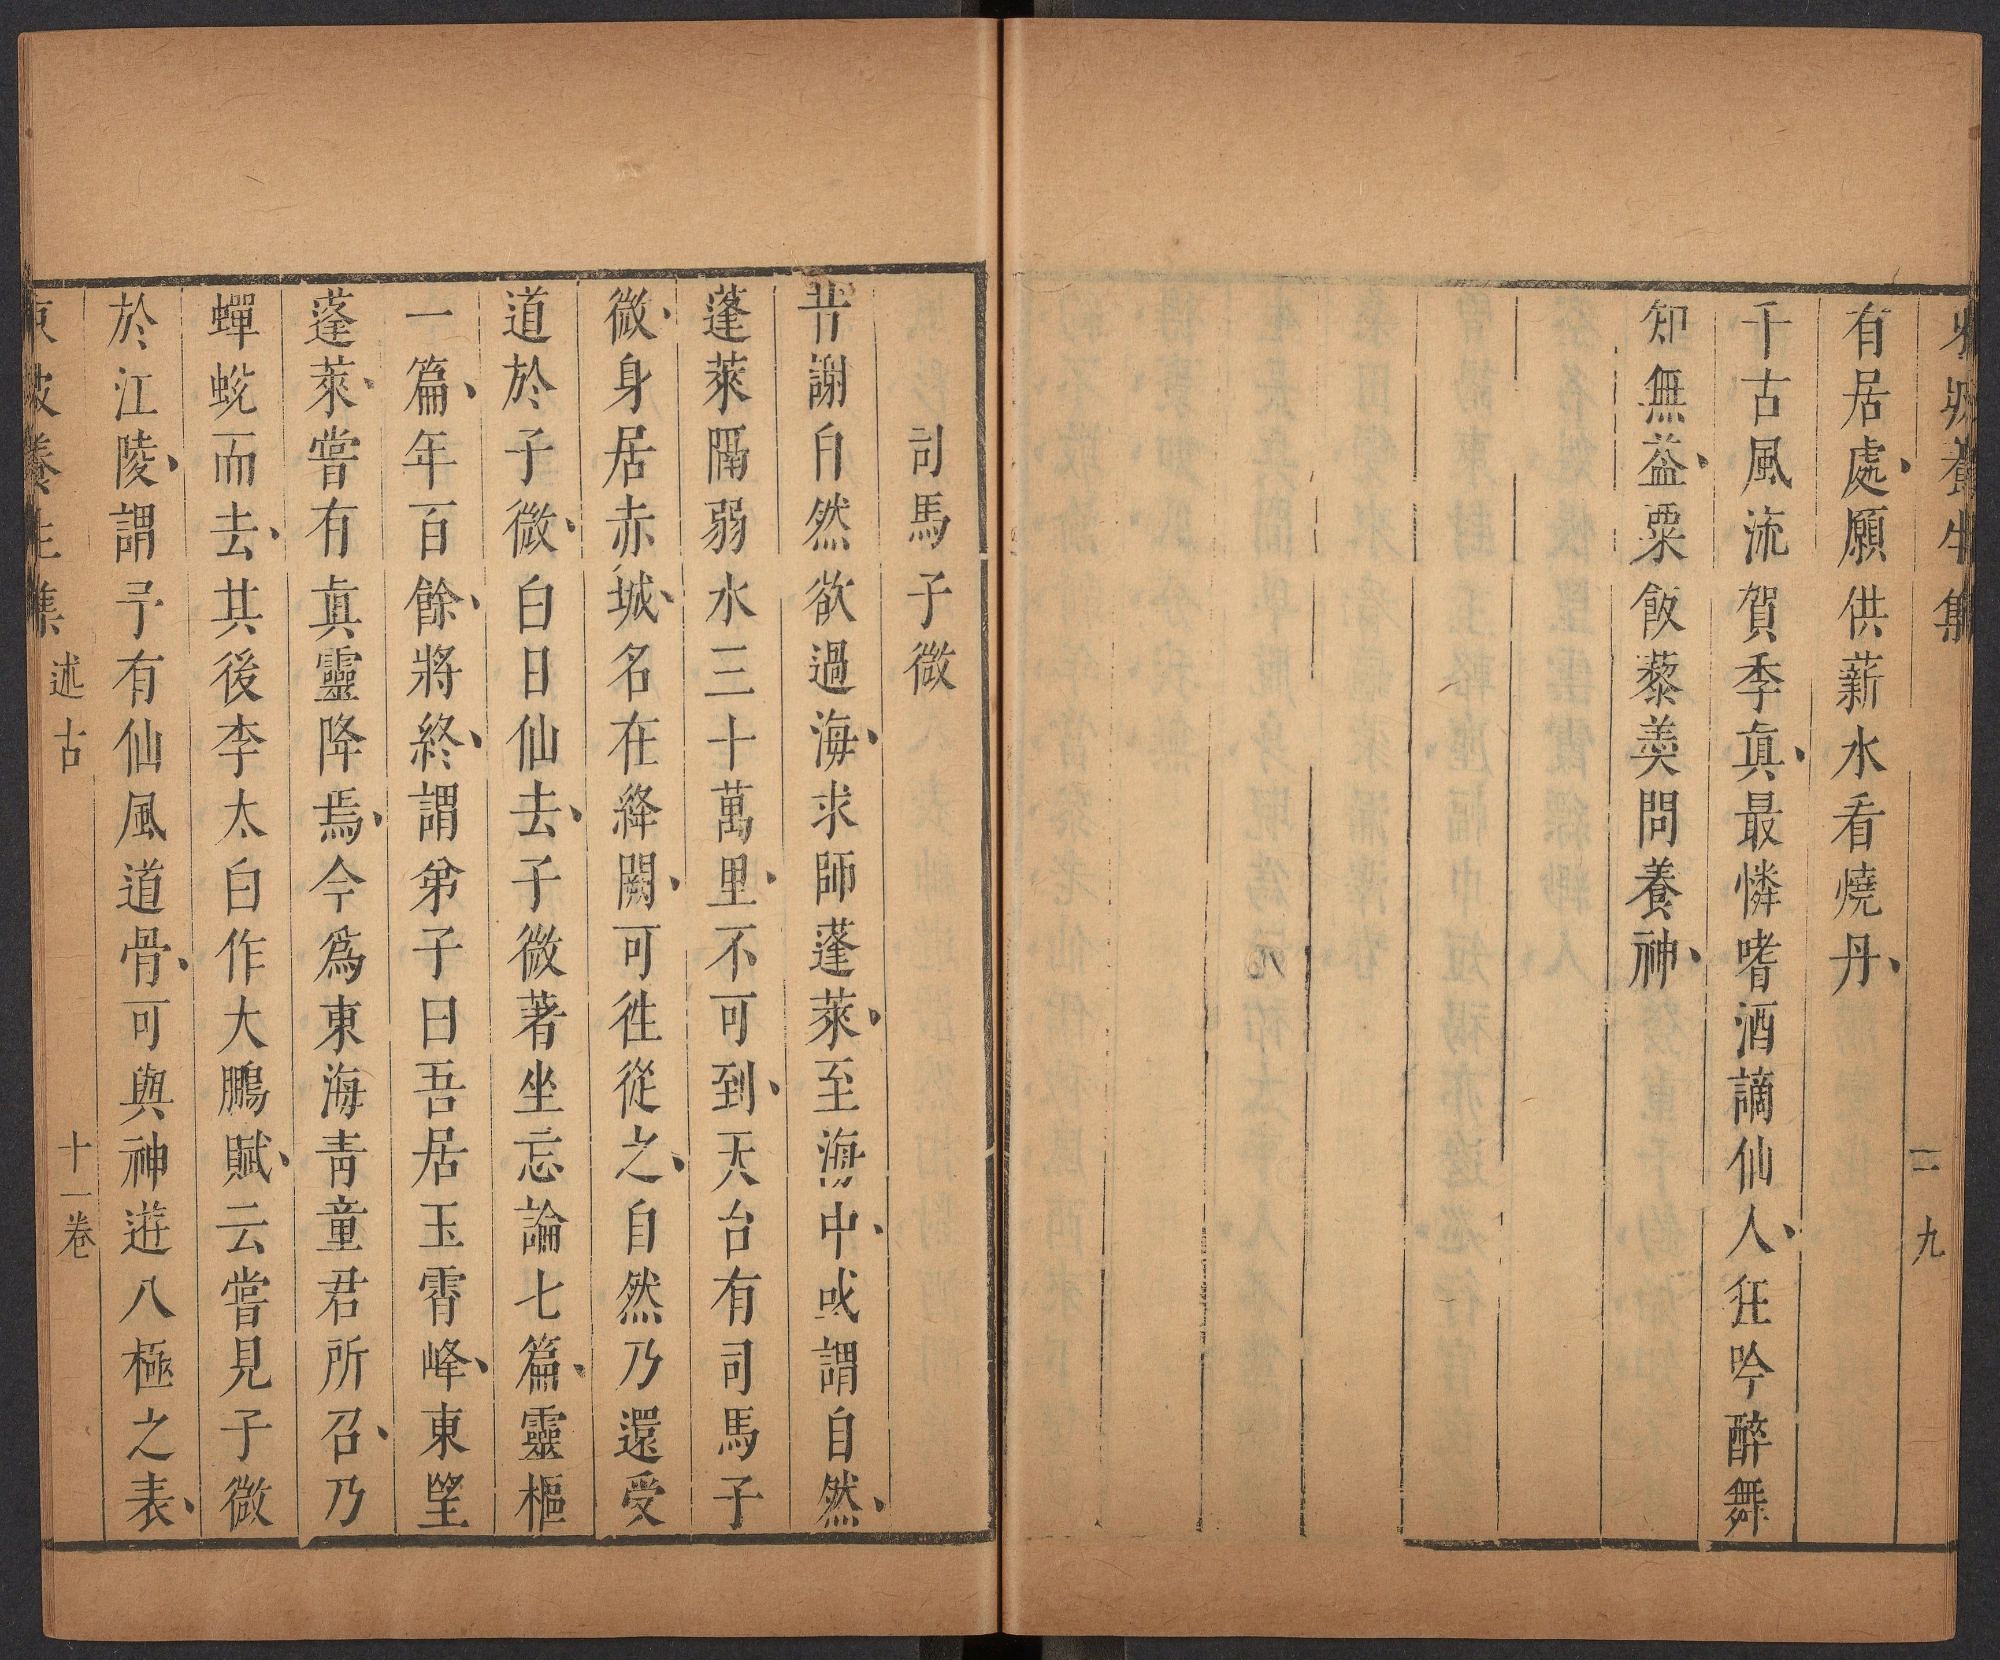 東坡養生集
一九
有居處願供薪水看燒丹
千古風流賀季眞最憐嗜酒謫仙人狂吟醉舞
知無益粟飯藜羮問養神
司馬子微
昔謝自然欲過海求師蓬萊至海中或謂自然
蓬萊隔弱水三十萬里不可到天台有司馬子
微身居赤城名在絳闕可徃從之自然乃還受
道於子微白日仙去子微著坐忘論七篇靈樞
一篇年百餘將終謂弟子曰吾居玉霄峰東望
蓬萊嘗有眞靈降焉今爲東海青童君所召乃
蟬蛻而去其後李太白作大鵬賦云嘗見子微
於江陵謂予有仙風道骨可與神遊八極之表
東坡養生集 述古 十一卷